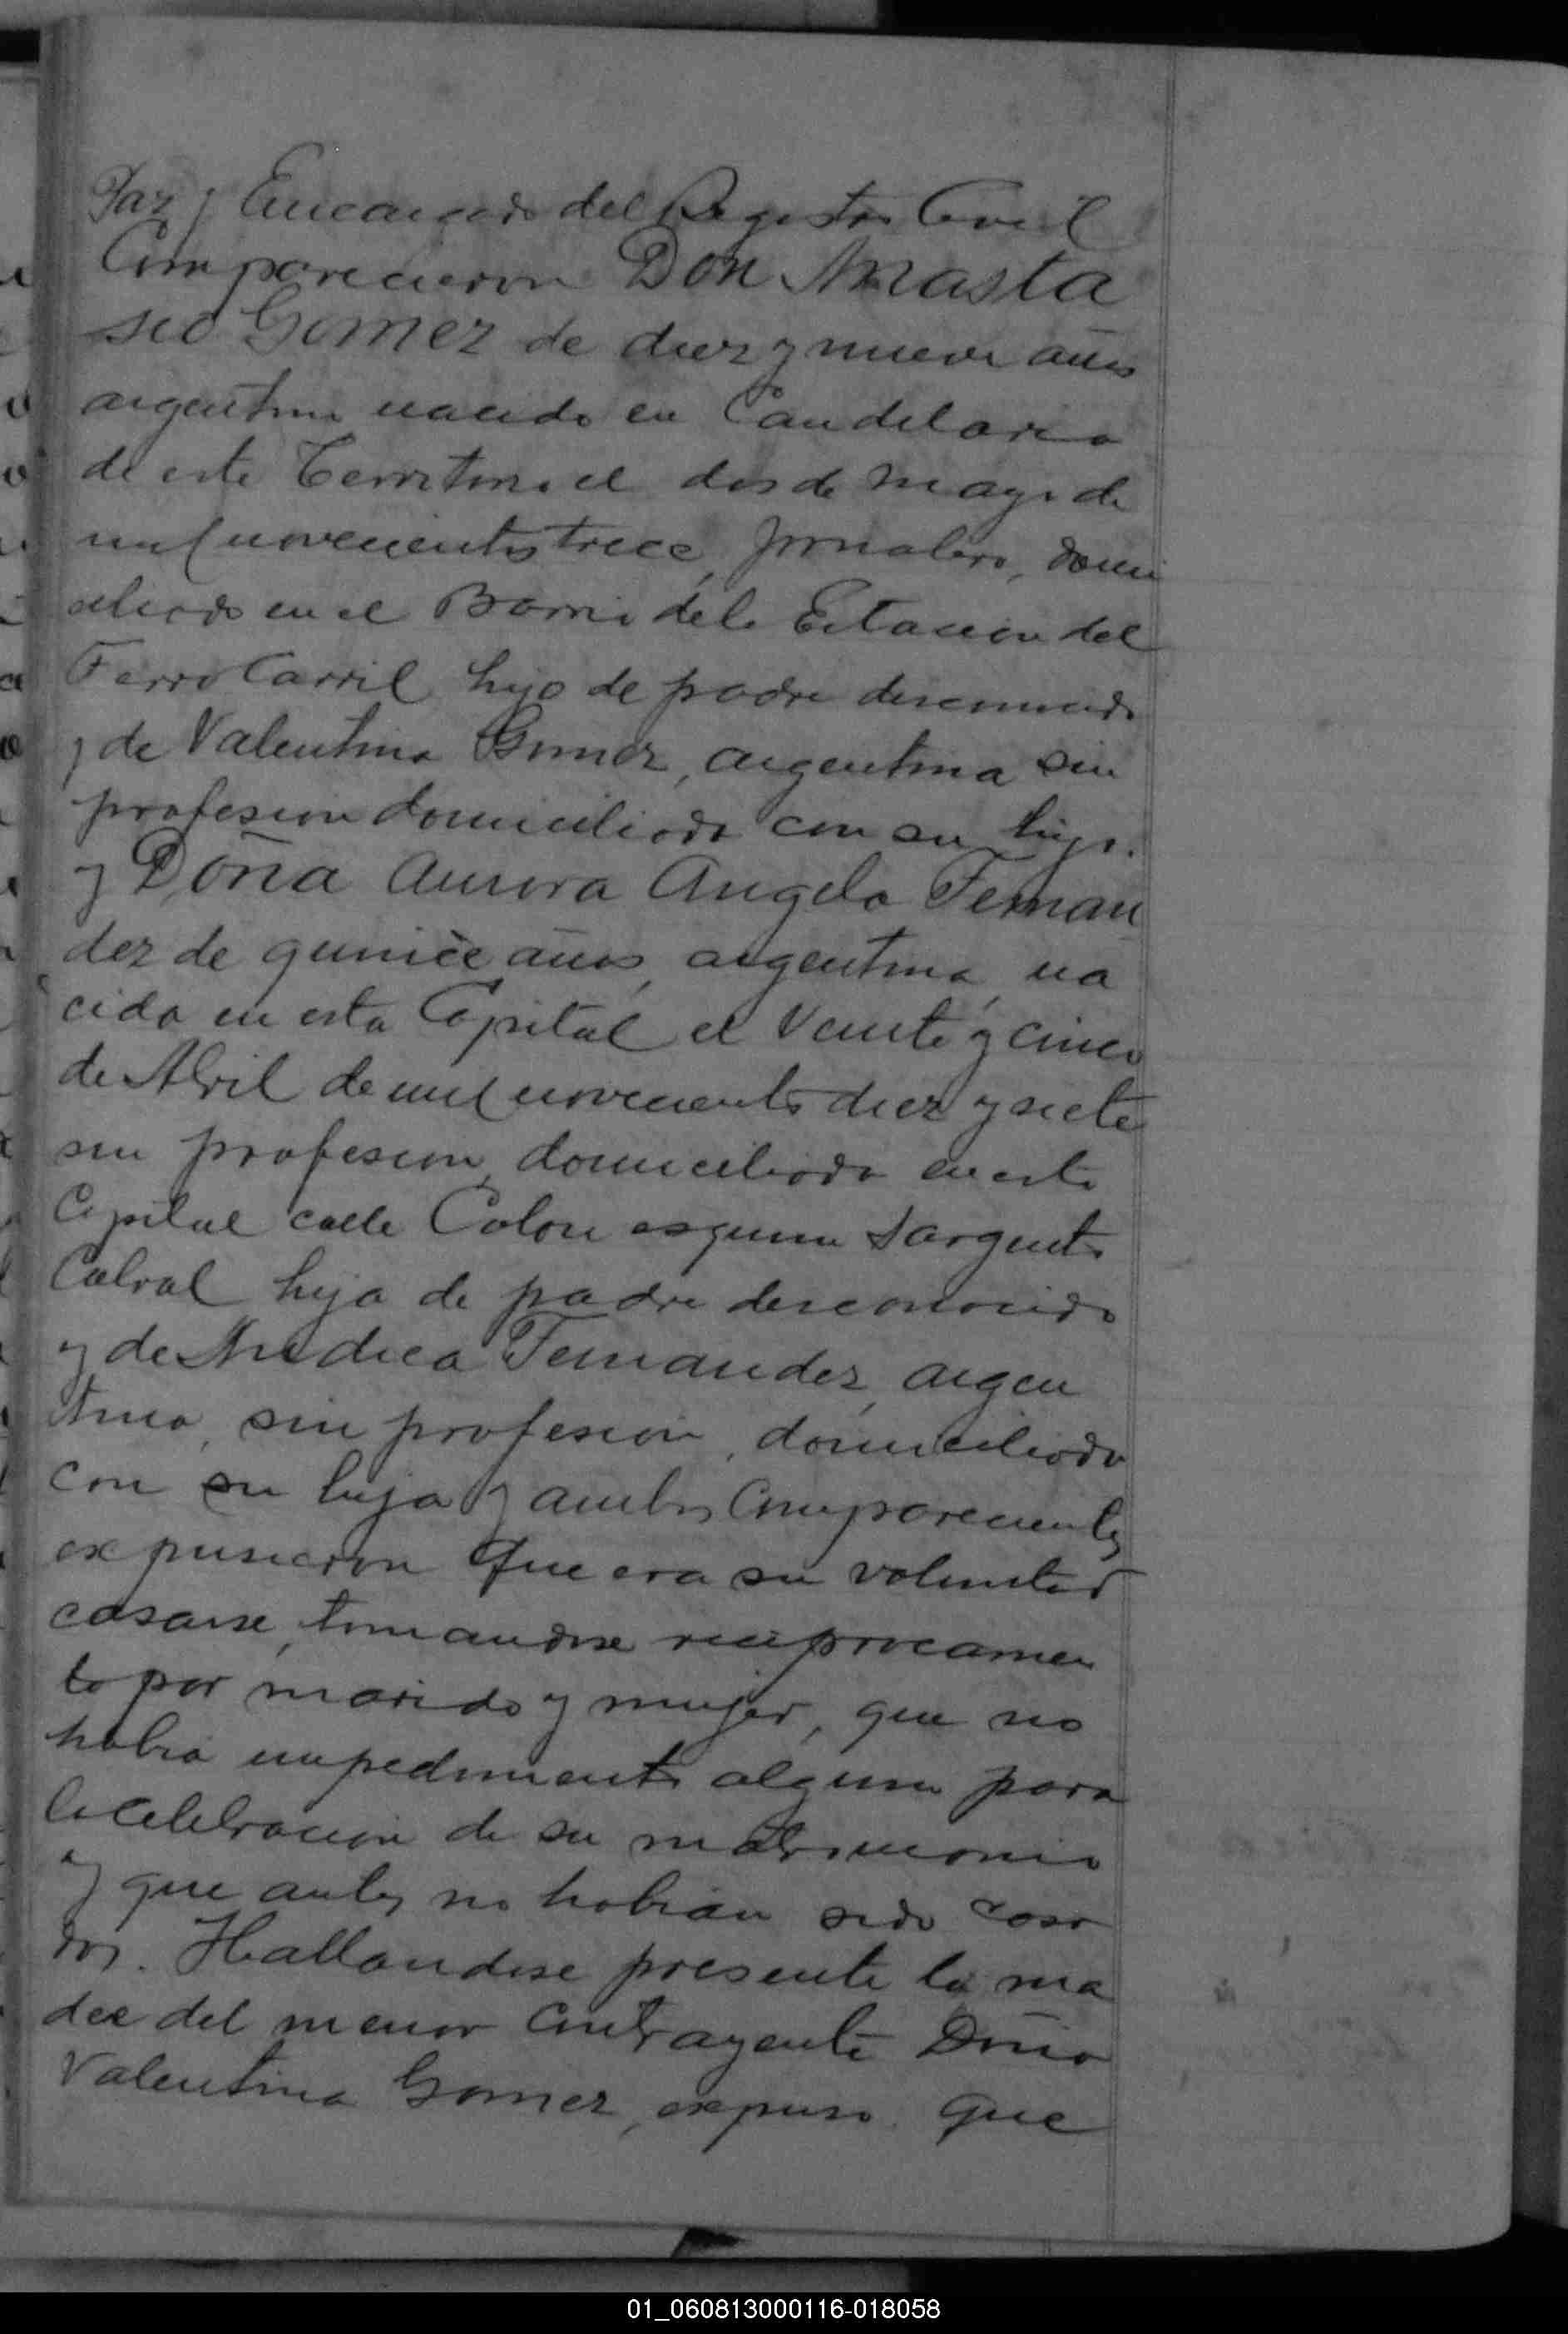 Paz y Encargado del Registro Civil
Comparecieron Don Anasta
sio Gomez de diez y nueve años
argentino nacido en Candelaria
de este Territorio el dos de mayo de
mil novecientos trece, jornalero, domi
ciliado en el Barrio de la Estacion del
Ferro Carril hijo de padre desconocido
y de Valentina Gomez, argentina sin
profesion domiciliada con su hijo.
y Doña Aurora Angela Fernan
dez de quince años, argentina, na
cida en esta Capital el veinte y cinco
de Abril de mil novecientos diez y siete
sin profesion, domiciliada en esta
Capital calle Colon esquina Sargento
Cabral hija de padre desconocido
y de Fernandez, argen
tina, sin profesion, domiciliada
con su hija y ambos comparecientes
expusieron Que era su voluntad
casarse, tomandose reciprocamen
te por marido y mujer, que no
habia impedimento alguno para
la celebracion de su matrimonio
y que antes no habian sido casa
dos. Hallandose presente la ma
dre del menor contrayente Doña
Valentina Gomez, expuso. Que
01_060813000116-018058